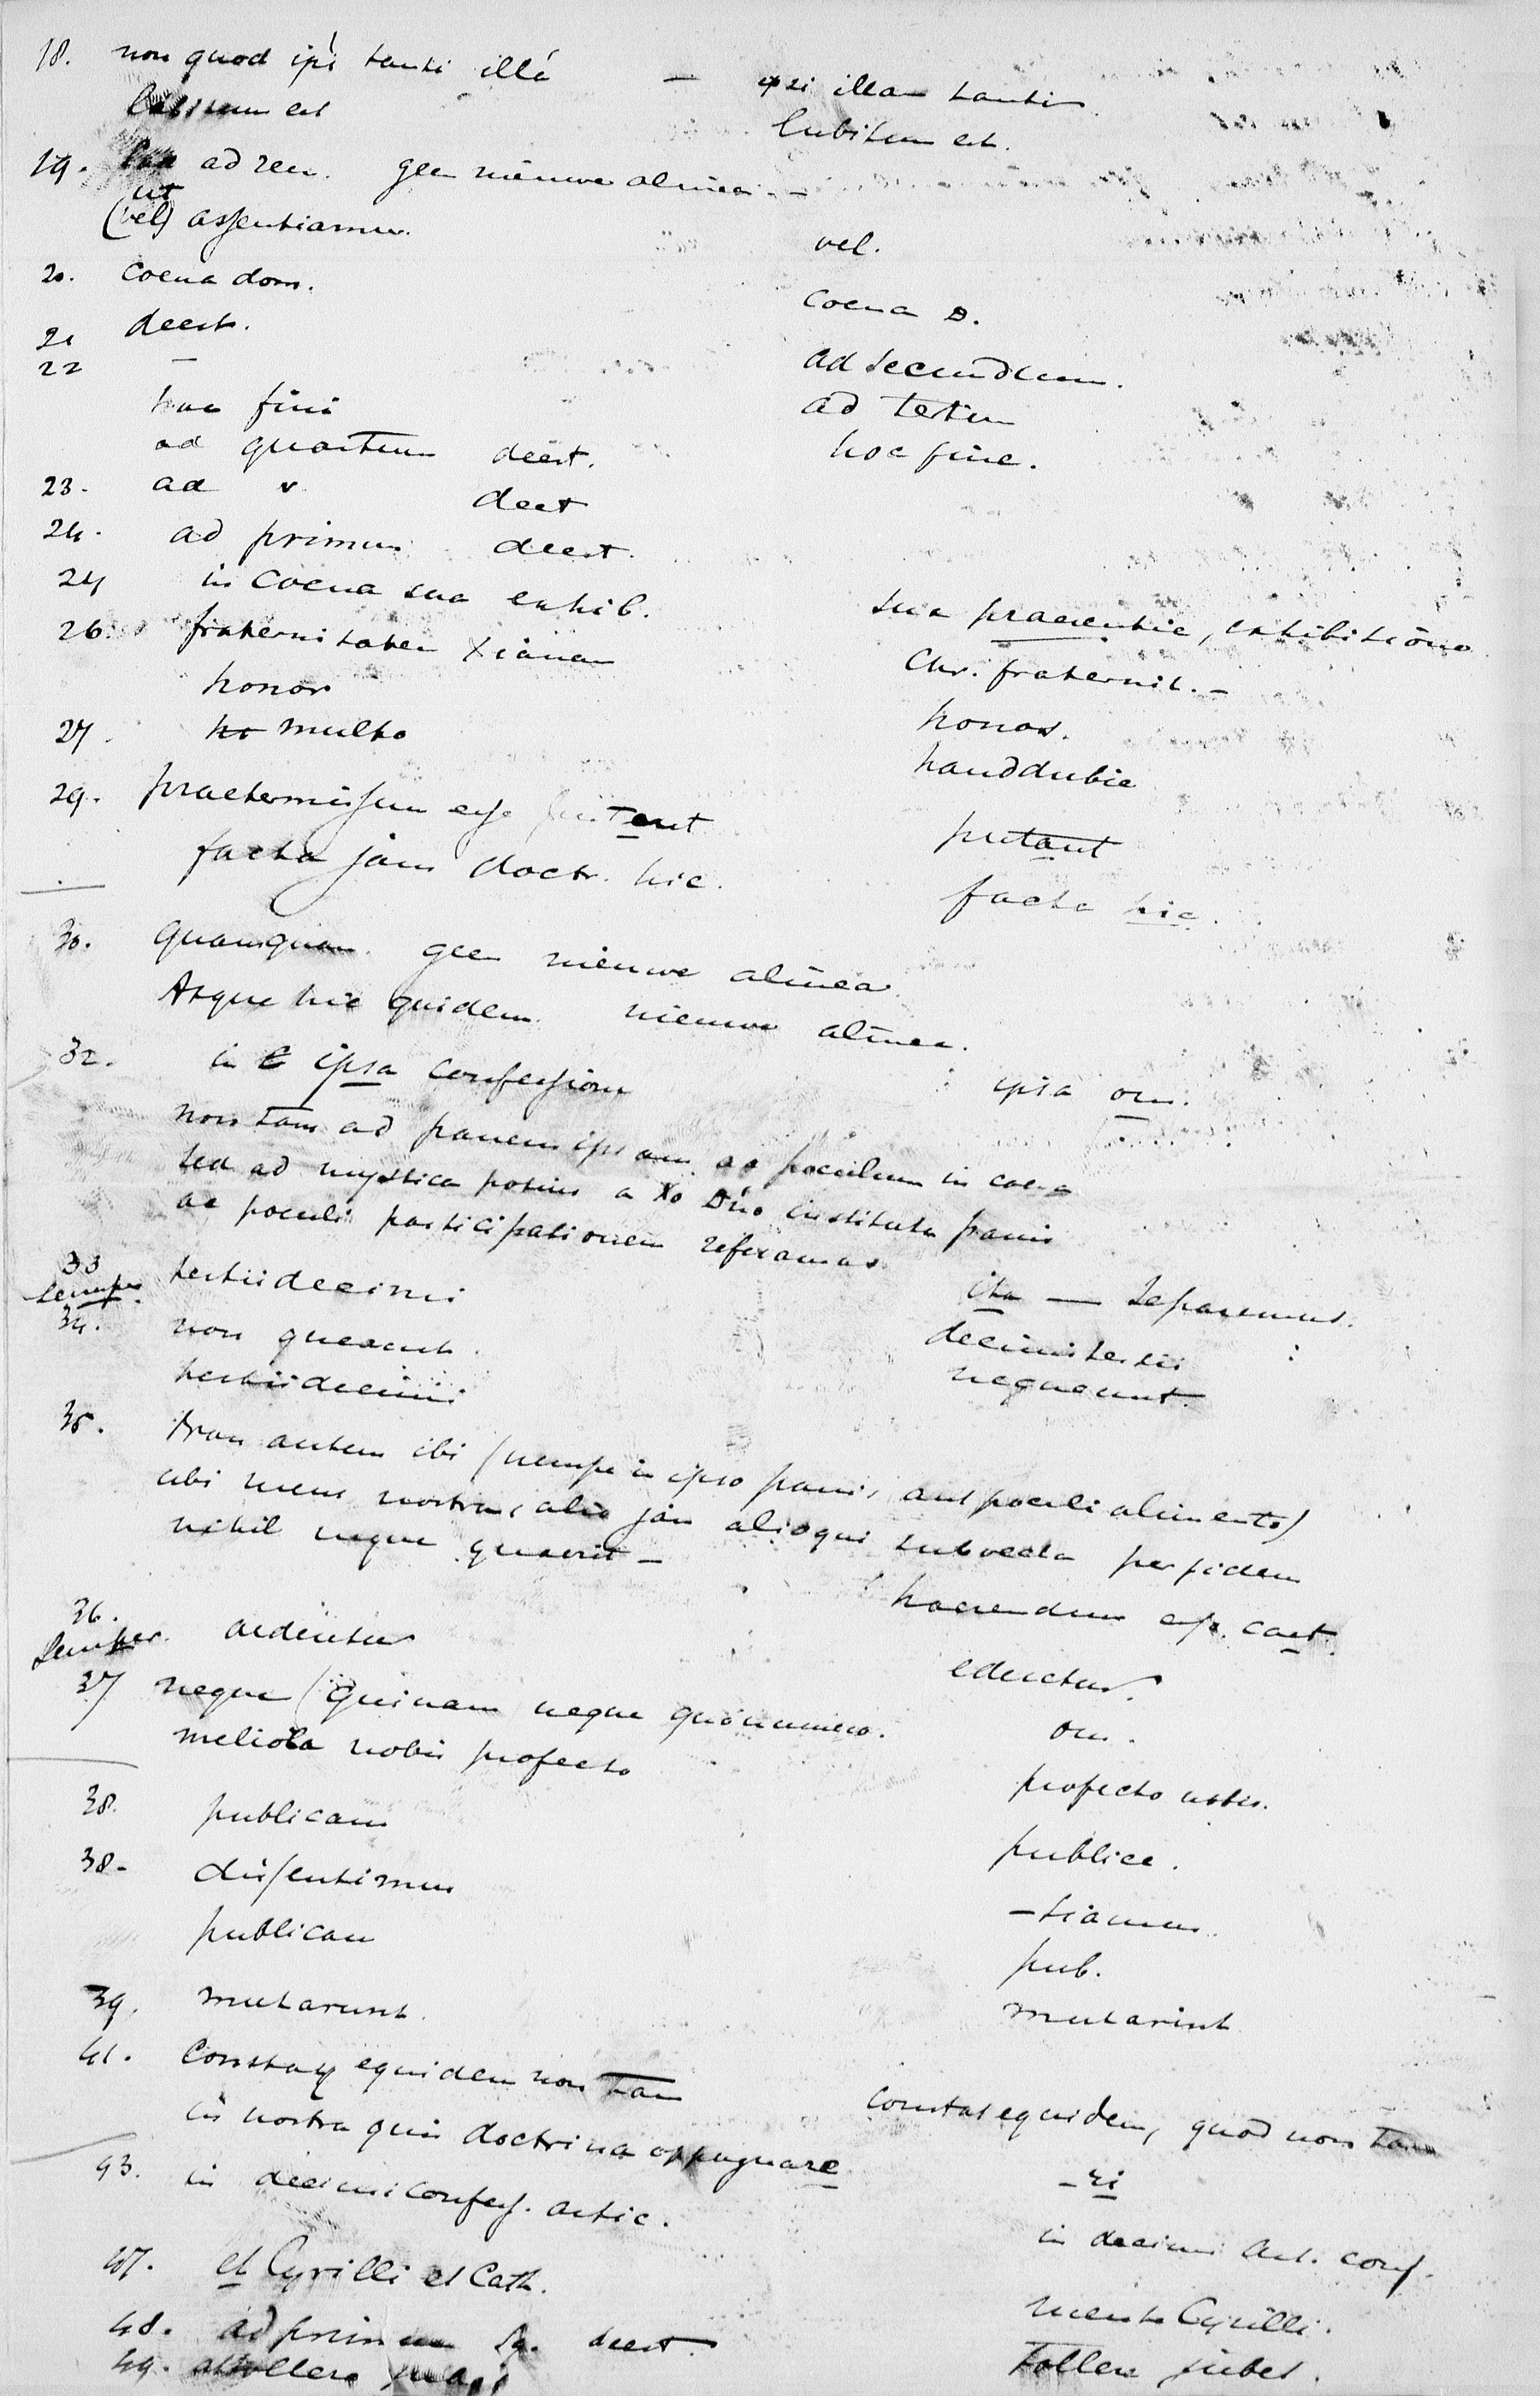 18. non quod ipi tanti illé — qui illam tanti
lubitum est lubitum est.
19. ad rem. geen nieuwe alinea. -
ut
(vel) assentiamur. vel.
20. coena dom. coena D.
21 deest. ad secundum.
22 — ad tertium
hac fini hoc fine.
ad quartum deest.
23. ad v deest
24. ad primum deest.
24 in Coena sua exhib. sua praesentia, exhibitione
26. fraternitatem Xianam Chr. fraternit. -
honor honos.
27. multo hauddubie
29. praetermissum esse putent putant
facta jam doctr. hic. facta hic.
30. Quamquam geen nieuwe alinea.
Atque hic quidem nieuwe alinea.
32. in ipsa confessione ipsa om.
non tam ad panem ipsam ac poculum in coena
sed ad mystica potius a Xo Dno instituta panis
ac poculi participationem referamus ita — separemus.
33 tertiidecimi decimitertii
Semper.
34. non queant nequeunt.
tertiidecimi
35. Non autem ibi (nempe in ipso panis aut poculi alimento)
ubi mens nostra, alio jam alioqui subvecta per fidem
nihil neque quaerit - haerendum esse. caet.
36. audientur educetur.
Semper.
37 neque (Quinam neque quo numero. om.
meliora nobis profecto profecto nobis.
38. publicam publice.
38- dissentimus -tiamus.
publicam pub.
39. mutarunt. mutarint
41. Constat equidem non tam constat equidem, quod non tam
in nostra quis doctrina oppugnare -ri
43. in decimi confess. artic. in decimi Art. conf.
47. et Cyrilli et Cath. Cyrilli.
48. ad primum deest.
49. tollere jubet.